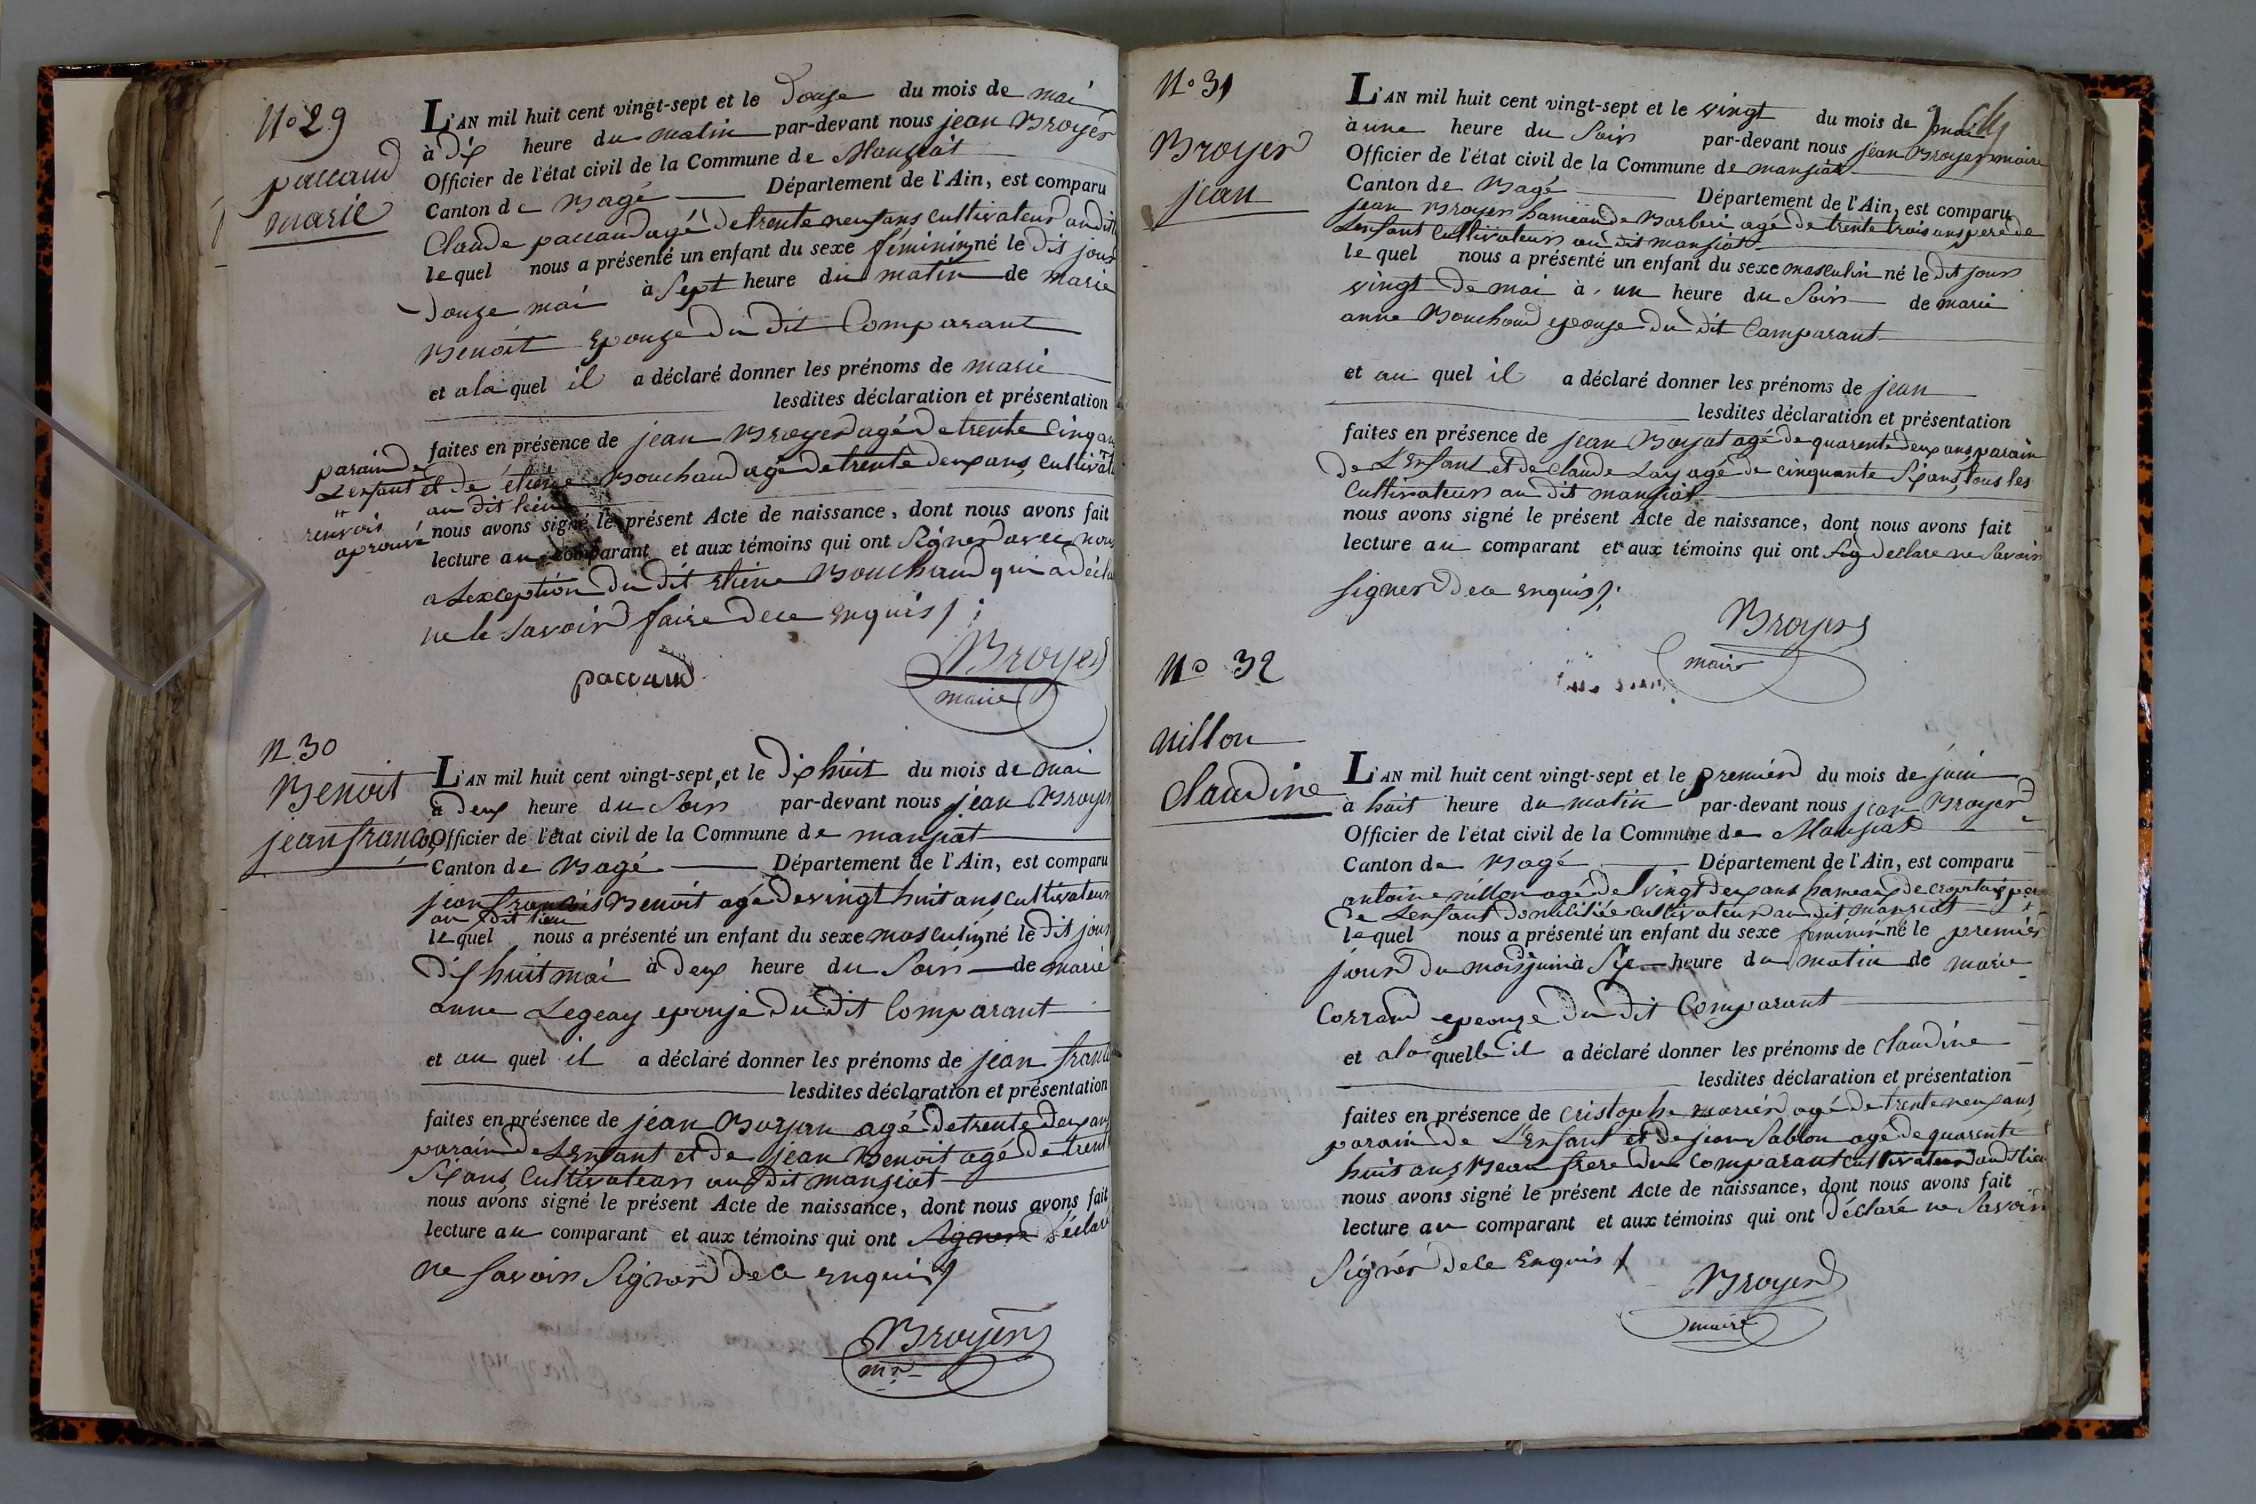 No 29
paccaud
marie
L'AN mil huit cent vingt-sept et le douze du mois de mai
à dix heure du matin par-devant nous jean Broyer
Officier de l'état civil de la Commune de Manziat
Canton de Bagé Département de l'Ain, est comparu
Claude paccaud agé de trente neuf ans cultivateur au dit
le quel nous a présenté un enfant du sexe féminin né le dit jour
douze mai à sept heure du matin de marie
Benoit Epouze du dit Comparant
et a la quel il a déclaré donner les prénoms de marie
lesdites déclaration et présentation
faites en présence de jean Broyer agé de trente cinq ans
parain de
L'enfant et de étiene Bouchaud agé de trente deux ans, cultivat
au dit lieu
renvois
aprouvé
nous avons signé le présent Acte de naissance, dont nous avons fait
lecture au comparant et aux témoins qui ont Signer avec nous
a Lexception du dit Etiene Bouchaud qui a décla
ne le savoir faire de ce Enquis
paccaud
Broyer
maire
N 30
Benoit
jean françois
L'AN mil huit cent vingt-sept, et le dix huit du mois de mai
à deux heure du Soir par-devant nous jean Broyer
Officier de l'état civil de la Commune de manziat
Canton de Bagé Département de l'Ain, est comparu
jean françois Benoit agé de vingt huit ans cultivateur
au dit lieu
le quel nous a présenté un enfant du sexe masculin, né le dit jour
dix huit mai à deux heure du Soir de marie
anne Legeay epouze du dit Comparant
et au quel il a déclaré donner les prénoms de jean franc
lesdites déclaration et présentation
faites en présence de jean agé de trente deux ans
parain de L'Enfant et de jean Benoit agé de trente
Six ans Cultivateur au dit manziat
nous avons signé le présent Acte de naissance, dont nous avons fait
lecture au comparant et aux témoins qui ont Signer déclaré
ne savoir Signer de ce Enquis
Broyer
mre
No 31
Broyer
jean
L'AN mil huit cent vingt-sept et le vingt du mois de mai
à une heure du Soir par-devant nous jean Broyer maire
Officier de l'état civil de la Commune de manziat
Canton de Bagé Département de l'Ain, est comparu
jean Broyer hameau de Barberi agé de trente trois ans pere de
Lenfant Cultivateur au dit manziat
le quel nous a présenté un enfant du sexe masculin né le dit jour
vingt de mai à un heure du Soir de marie
anne Bouchaud epouze du dit Comparant
et au quel il a déclaré donner les prénoms de jean
lesdites déclaration et présentation
faites en présence de jean Boyat agé de quarente deux ans parain
de L'Enfant et de Claude Lay agé de cinquante Six ans, tous les
Cultivateur au dit manziat
nous avons signé le présent Acte de naissance, dont nous avons fait
lecture au comparant et aux témoins qui ont Sig declare ne Savoir
signer de ce Enquis
Broyer
maire
No 32
nillon
Claudine
L'AN mil huit cent vingt-sept et le premier du mois de juin
à huit heure du matin par-devant nous jean Broyer
Officier de l'état civil de la Commune de Manziat
Canton de Bagé Département de l'Ain, est comparu
antoine nillon agé de vingt deux ans hameau de per
de Lenfant domiciliée cultivateur au dit manziat
le quel nous a présenté un enfant du sexe feminin né le premier
jour du mois de juin à Six heure du matin de marie
Corrand epeouze du dit Comparant
et a la quelle il a déclaré donner les prénoms de Claudine
lesdites déclaration et présentation
faites en présence de Cristophe marier agé de trente neuf ans
parain de L'Enfant et de jean Sablon agé de quarente
huit ans, Beau frere du Comparant cultivateur au dt lieu
nous avons signé le présent Acte de naissance, dont nous avons fait
lecture au comparant et aux témoins qui ont déclaré ne Savoir
Signer de ce Enquis
Broyer
maire